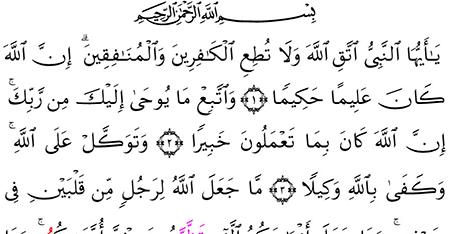 بِسْمِ ٱللَّهِ ٱلرَّحْمَٰنِ ٱلرَّحِيمِ
يَـٰٓأَيُّهَا ٱلنَّبِىُّ ٱتَّقِ ٱللَّهَ وَلَا تُطِعِ ٱلْكَـٰفِرِينَ وَٱلْمُنَـٰفِقِينَ ۗ إِنَّ ٱللَّهَ
كَانَ عَلِيمًا حَكِيمًا ﴿١﴾ وَٱتَّبِعْ مَا يُوحَىٰٓ إِلَيْكَ مِن رَّبِّكَ ۚ
إِنَّ ٱللَّهَ كَانَ بِمَا تَعْمَلُونَ خَبِيرًا ﴿٢﴾ وَتَوَكَّلْ عَلَى ٱللَّهِ ۚ
وَكَفَىٰ بِٱللَّهِ وَكِيلًا ﴿٣﴾ مَّا جَعَلَ ٱللَّهُ لِرَجُلٍ مِّن قَلْبَيْنِ فِى